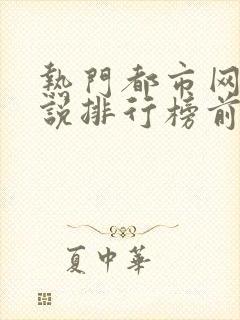 熱門都市网
說排行榜前
夏中華